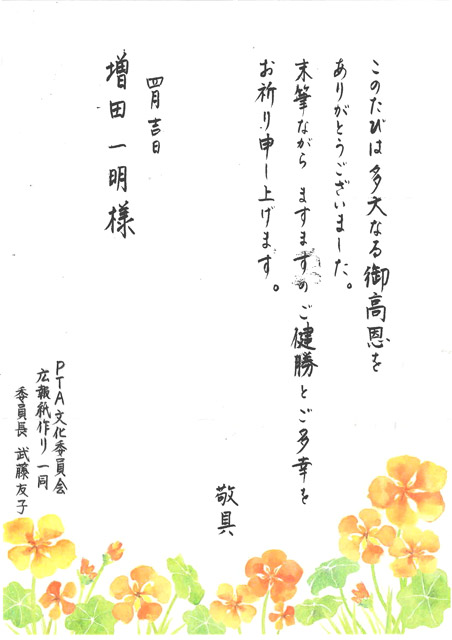 このたびは多大なる御高恩を
ありがとうございました。
末筆ながら ますますのご健勝とご多幸を
お祈り申し上げます。
敬具
四月吉日
増田一明様
PTA文化委員会
広報紙作り一同
委員長 武藤友子